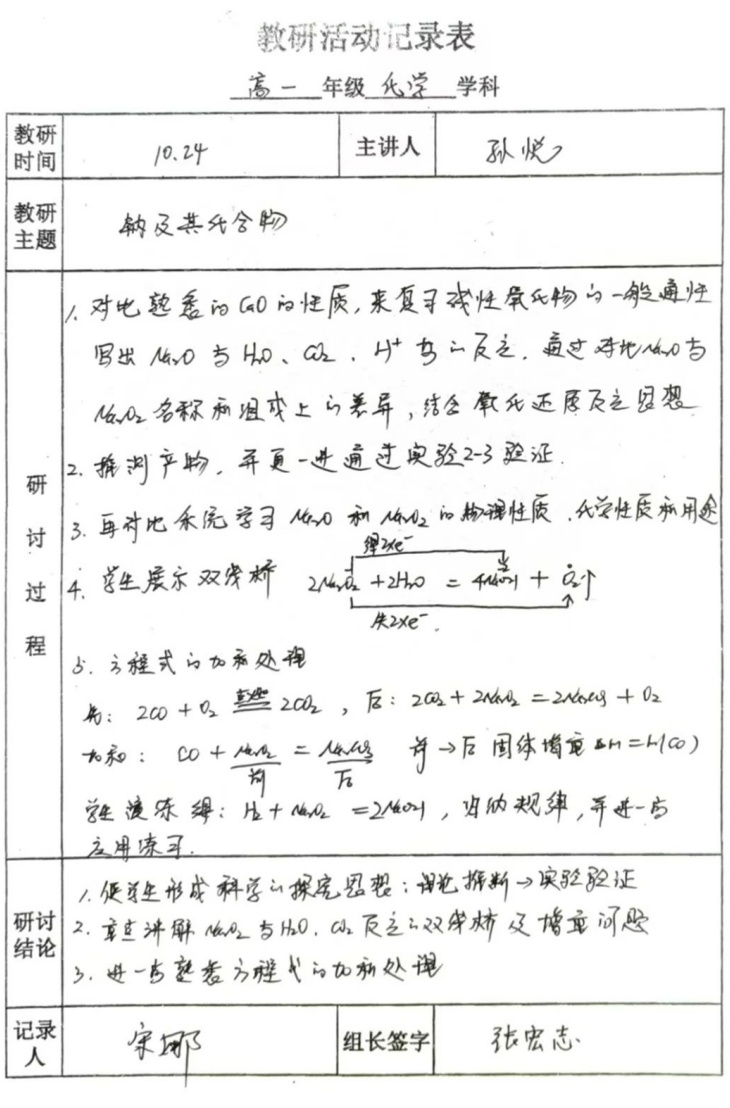 教研活动记录表
高一 年级 化学 学科
教研时间 10.24 主讲人 孙悦
教研主题 钠及其化合物
研讨过程
1. 对比熟悉的CaO的性质,来复习碱性氧化物的一般通性
写出Na₂O与H₂O、CO₂、H⁺等的反应. 通过对比Na₂O与
Na₂O₂名称和组成上的差异,结合氧化还原反应思想
2. 推测产物,并更一进通过实验2-3验证.
3. 再对比系统学习Na₂O和Na₂O₂的物理性质、化学性质和用途
得2×e⁻
4. 学生展示双线桥 2Na₂O₂ + 2H₂O = 4NaOH + O₂↑
失2×e⁻.
5. 方程式的加和处理
前: 2CO + O₂ 点燃 2CO₂ , 后: 2CO₂ + 2Na₂O₂ = 2Na₂CO₃ + O₂
加和: CO + Na₂O₂ = Na₂CO₃ 前→后 固体增重 Δm = m(CO)
前 后
学生演练得: H₂ + Na₂O₂ = 2NaOH , 归纳规律,并进一步
应用练习.
研讨结论
1. 使学生形成科学的探究思想:理论推断→实验验证
2. 重点讲解Na₂O₂与H₂O、CO₂反应的双线桥及增重问题
3. 进一步熟悉方程式的加和处理
记录人 宋娜 组长签字 张宏志